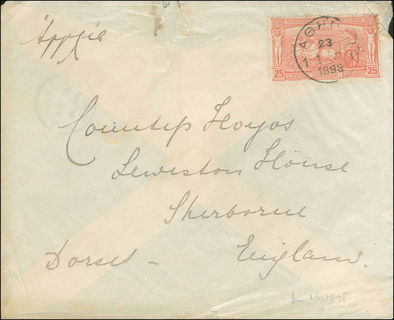 Ἀγγλία
ΑΘΗΝ
23
1893
25 25
Countess Hoyos
Lewiston House
Sherborne
Dorset - England.